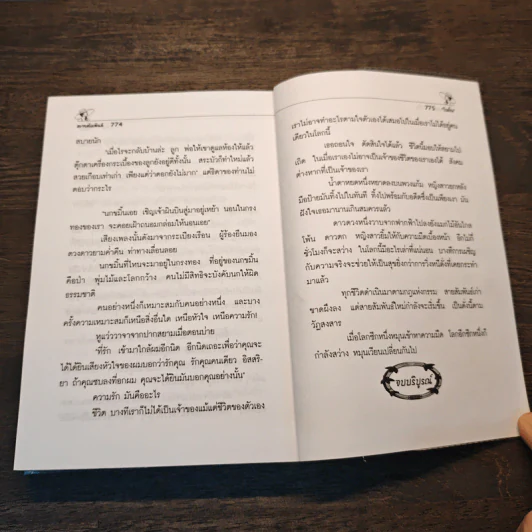 774
สบายนัก
"เมื่อไรจะกลับบ้านล่ะ ลูก พ่อให้เขาดูแลห้องให้แล้ว
ตุ๊กตาเครื่องกระเบื้องของลูกยังอยู่ดีทั้งนั้น สระบัวก็ทำใหม่แล้ว
สวยเกือบเท่าเก่า เพียงแต่ว่าดอกยังไม่มาก" แต่ธิดาของท่านไม่
ตอบว่ากระไร
"นกขมิ้นเอย เชิญเจ้าผินบินสู่มาอยู่เหย้า นอนในกรง
ทองของเรา จะคอยเฝ้าถนอมกล่อมให้นอนเอย"
เสียงเพลงนั้นดังมาจากระเบียงเรือน ผู้ร้องยืนมอง
ดวงดาวยามค่ำคืน ท่าทางเลื่อนลอย
นกขมิ้นที่ไหนจะมาอยู่ในกรงทอง ที่อยู่ของนกขมิ้น
คือป่า พุ่มไม้และโลกกว้าง คนไม่มีสิทธิจะบังคับนกให้ผิด
ธรรมชาติ
คนอย่างหนึ่งก็เหมาะสมกับคนอย่างหนึ่ง และบาง
ครั้งความเหมาะสมก็เหนือสิ่งอื่นใด เหนือหัวใจ เหนือความรัก!
หูแว่ววาจาจากปากสยามเมื่อตอนบ่าย
"ที่รัก เข้ามาใกล้ผมอีกนิด อีกนิดเถอะเพื่อว่าคุณจะ
ได้ได้ยินเสียงหัวใจของผมบอกว่ารักคุณ รักคุณคนเดียว อิสสริ-
ยา ถ้าคุณซบลงที่อกผม คุณจะได้ยินมันบอกคุณอย่างนั้น"
ความรัก มันคืออะไร
ชีวิต บางทีเราก็ไม่ได้เป็นเจ้าของแม้แต่ชีวิตของตัวเอง
775
เราไม่อาจทำอะไรตามใจตัวเองได้เสมอไปในเมื่อเราไม่ได้อยู่คน
เดียวในโลกนี้
เธอถอนใจ ตัดสินใจได้แล้ว ชีวิตนี้มอบให้สยามไป
เถิด ในเมื่อเราเองไม่อาจเป็นเจ้าของชีวิตของเราเองได้ สังคม
ต่างหากที่เป็นเจ้าของเรา
น้ำตาหยดหนึ่งหยาดลงบนพวงแก้ม หญิงสาวยกหลัง
มือป้ายมันทิ้งไปในทันที ทิ้งไปพร้อมกับอดีตซึ่งเป็นเพียงเงา มัน
ฝังใจเธอมานานเกินสมควรแล้ว
ดาวดวงหนึ่งวาบจากฟากฟ้าไปลงยังแมกไม้อันไกล
โพ้น ดาวตก หญิงสาวยิ้มให้กับความมืดเบื้องหน้า อีกไม่กี่
ชั่วโมงก็จะสว่าง ในโลกนี้มีอะไรเล่าที่แน่นอน บางทีการเผชิญ
กับความจริงจะช่วยให้เป็นสุขยิ่งกว่าการวิ่งหนีดังที่เคยกระทำ
มาแล้ว
ทุกชีวิตดำเนินมาตามกฎแห่งกรรม สายสัมพันธ์เก่า
ขาดผึงลง แต่สายสัมพันธ์ใหม่กำลังจะเริ่มขึ้น เป็นดั่งนี้ตาม
วัฏสงสาร
เมื่อโลกซีกหนึ่งหมุนเข้าหาความมืด โลกอีกซีกหนึ่งก็
กำลังสว่าง หมุนเวียนเปลี่ยนกันไป
จบบริบูรณ์